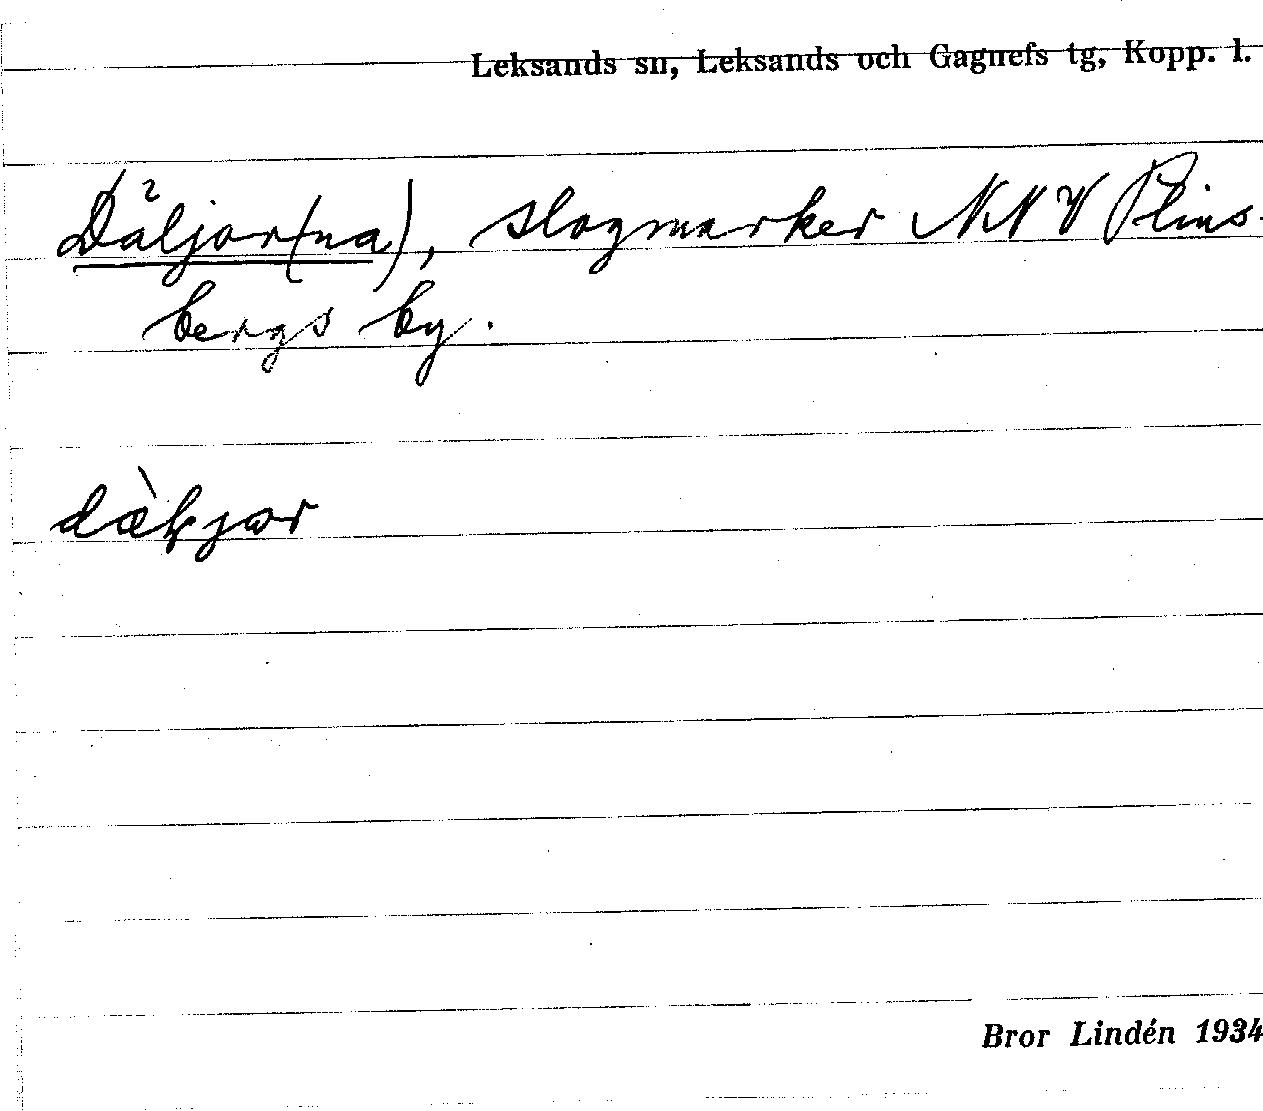 Leksands sn, Leksands och Gagnefs tg, Kopp. l.
Däljor(na), slogmarker NNV Plins-
bergs by.
dæ̀ļjor
Bror Lindén 1934